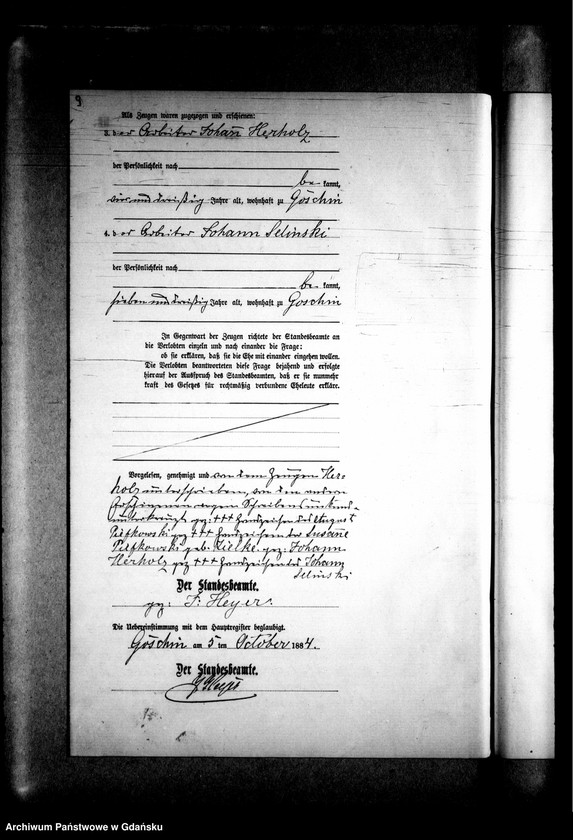 9
Als Zeugen waren zugezogen und erschienen:
3. der Arbeiter Johann Herholz
der Persönlichkeit nach
be kannt,
vierunddreißig Jahre alt, wohnhaft zu Göschin
4. der Arbeiter Johann Selinski
der Persönlichkeit nach
be kannt,
siebenunddreißig Jahre alt, wohnhaft zu Goschin
In Gegenwart der Zeugen richtete der Standesbeamte an
die Verlobten einzeln und nach einander die Frage:
ob sie erklären, daß sie die Ehe mit einander eingehen wollen.
Die Verlobten beantworteten diese Frage bejahend und erfolgte
hierauf der Ausspruch des Standesbeamten, daß er sie nunmehr
kraft des Gesetzes für rechtmäßig verbundene Eheleute erkläre.
Vorgelesen, genehmigt und von dem Zeugen Her-
holz unterschrieben, von den andern
Erschienenen wegen Schreibensunkunde
unterkreuzt gez: +++ Handzeichen des August
Piefkowski gez +++ Handzeichen der Susanne
Piefkowski geb: Zielke gez: Johann
Herholz gez +++ Handzeichen des Johann
Selinski
Der Standesbeamte.
gez: F: Heyer.
Die Uebereinstimmung mit dem Hauptregister beglaubigt.
Göschin am 5 ten October 1884.
Der Standesbeamte.
Heyer
Archiwum Państwowe w Gdańsku